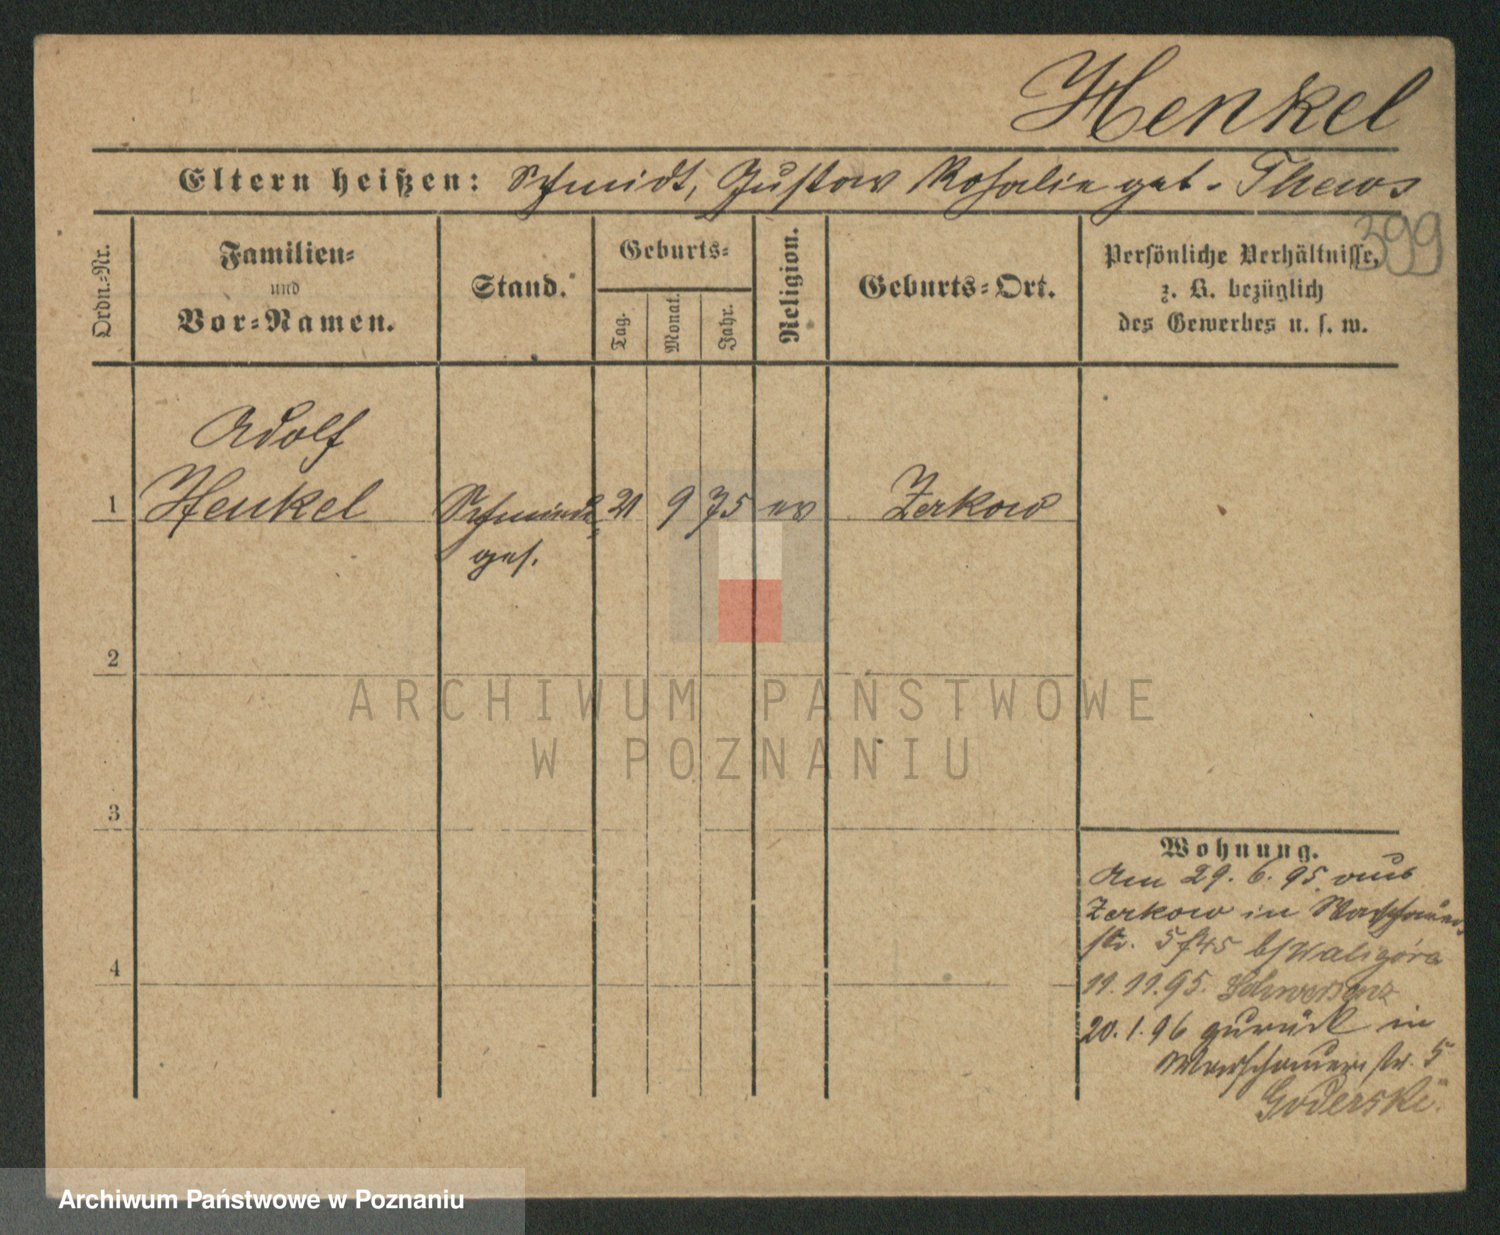 Henkel
Eltern heißen: Schmidt, Gustav Rosalie geb. Thews
399
Ordn.-Nr.
Familien-
und
Vor-Namen.
Stand.
Geburts-
Tag.
Monat.
Jahr.
Religion.
Geburts-Ort.
Persönliche Verhältnisse,
z. B. bezüglich
des Gewerbes u. s. w.
Adolf
1 Henkel Schmiede 21 9 75 ev Zerkow
ges.
2
ARCHIWUM PAŃSTWOWE
W POZNANIU
3
Wohnung.
Am 29. 6. 95 aus
Zerkow in Warschauer
str. 5 b/Waligóra
11.11.95. Schwersenz
4
20.1.96 zurück in
Warschauer str. 5
Goderski
Archiwum Państwowe w Poznaniu